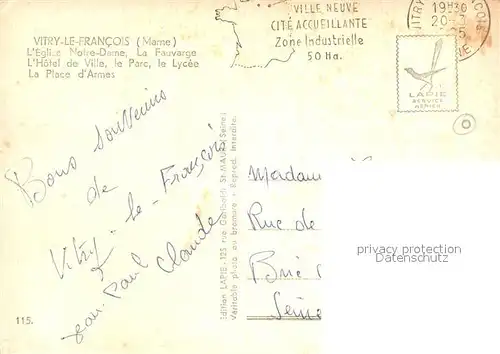 VITRY-LE-FRANÇOIS (Marne)
L'Eglise Notre-Dame, La Fauvarge
L'Hôtel de Ville, le Parc, le Lycée
La Place d'Armes
VILLE NEUVE
CITÉ ACCUEILLANTE
Zone Industrielle
50 Ha.
19H30
20-3
LAPIE
SERVICE
AÉRIEN
Bons souvenirs
de
Vitry-le-François
Jean Paul Claude
Edition LAPIE - 125 rue Garibaldi St-MAUR (Seine)
Véritable photo au bromure - Reprod. interdite.
Madam
Rue de
Brie
Seine
privacy protection
115.